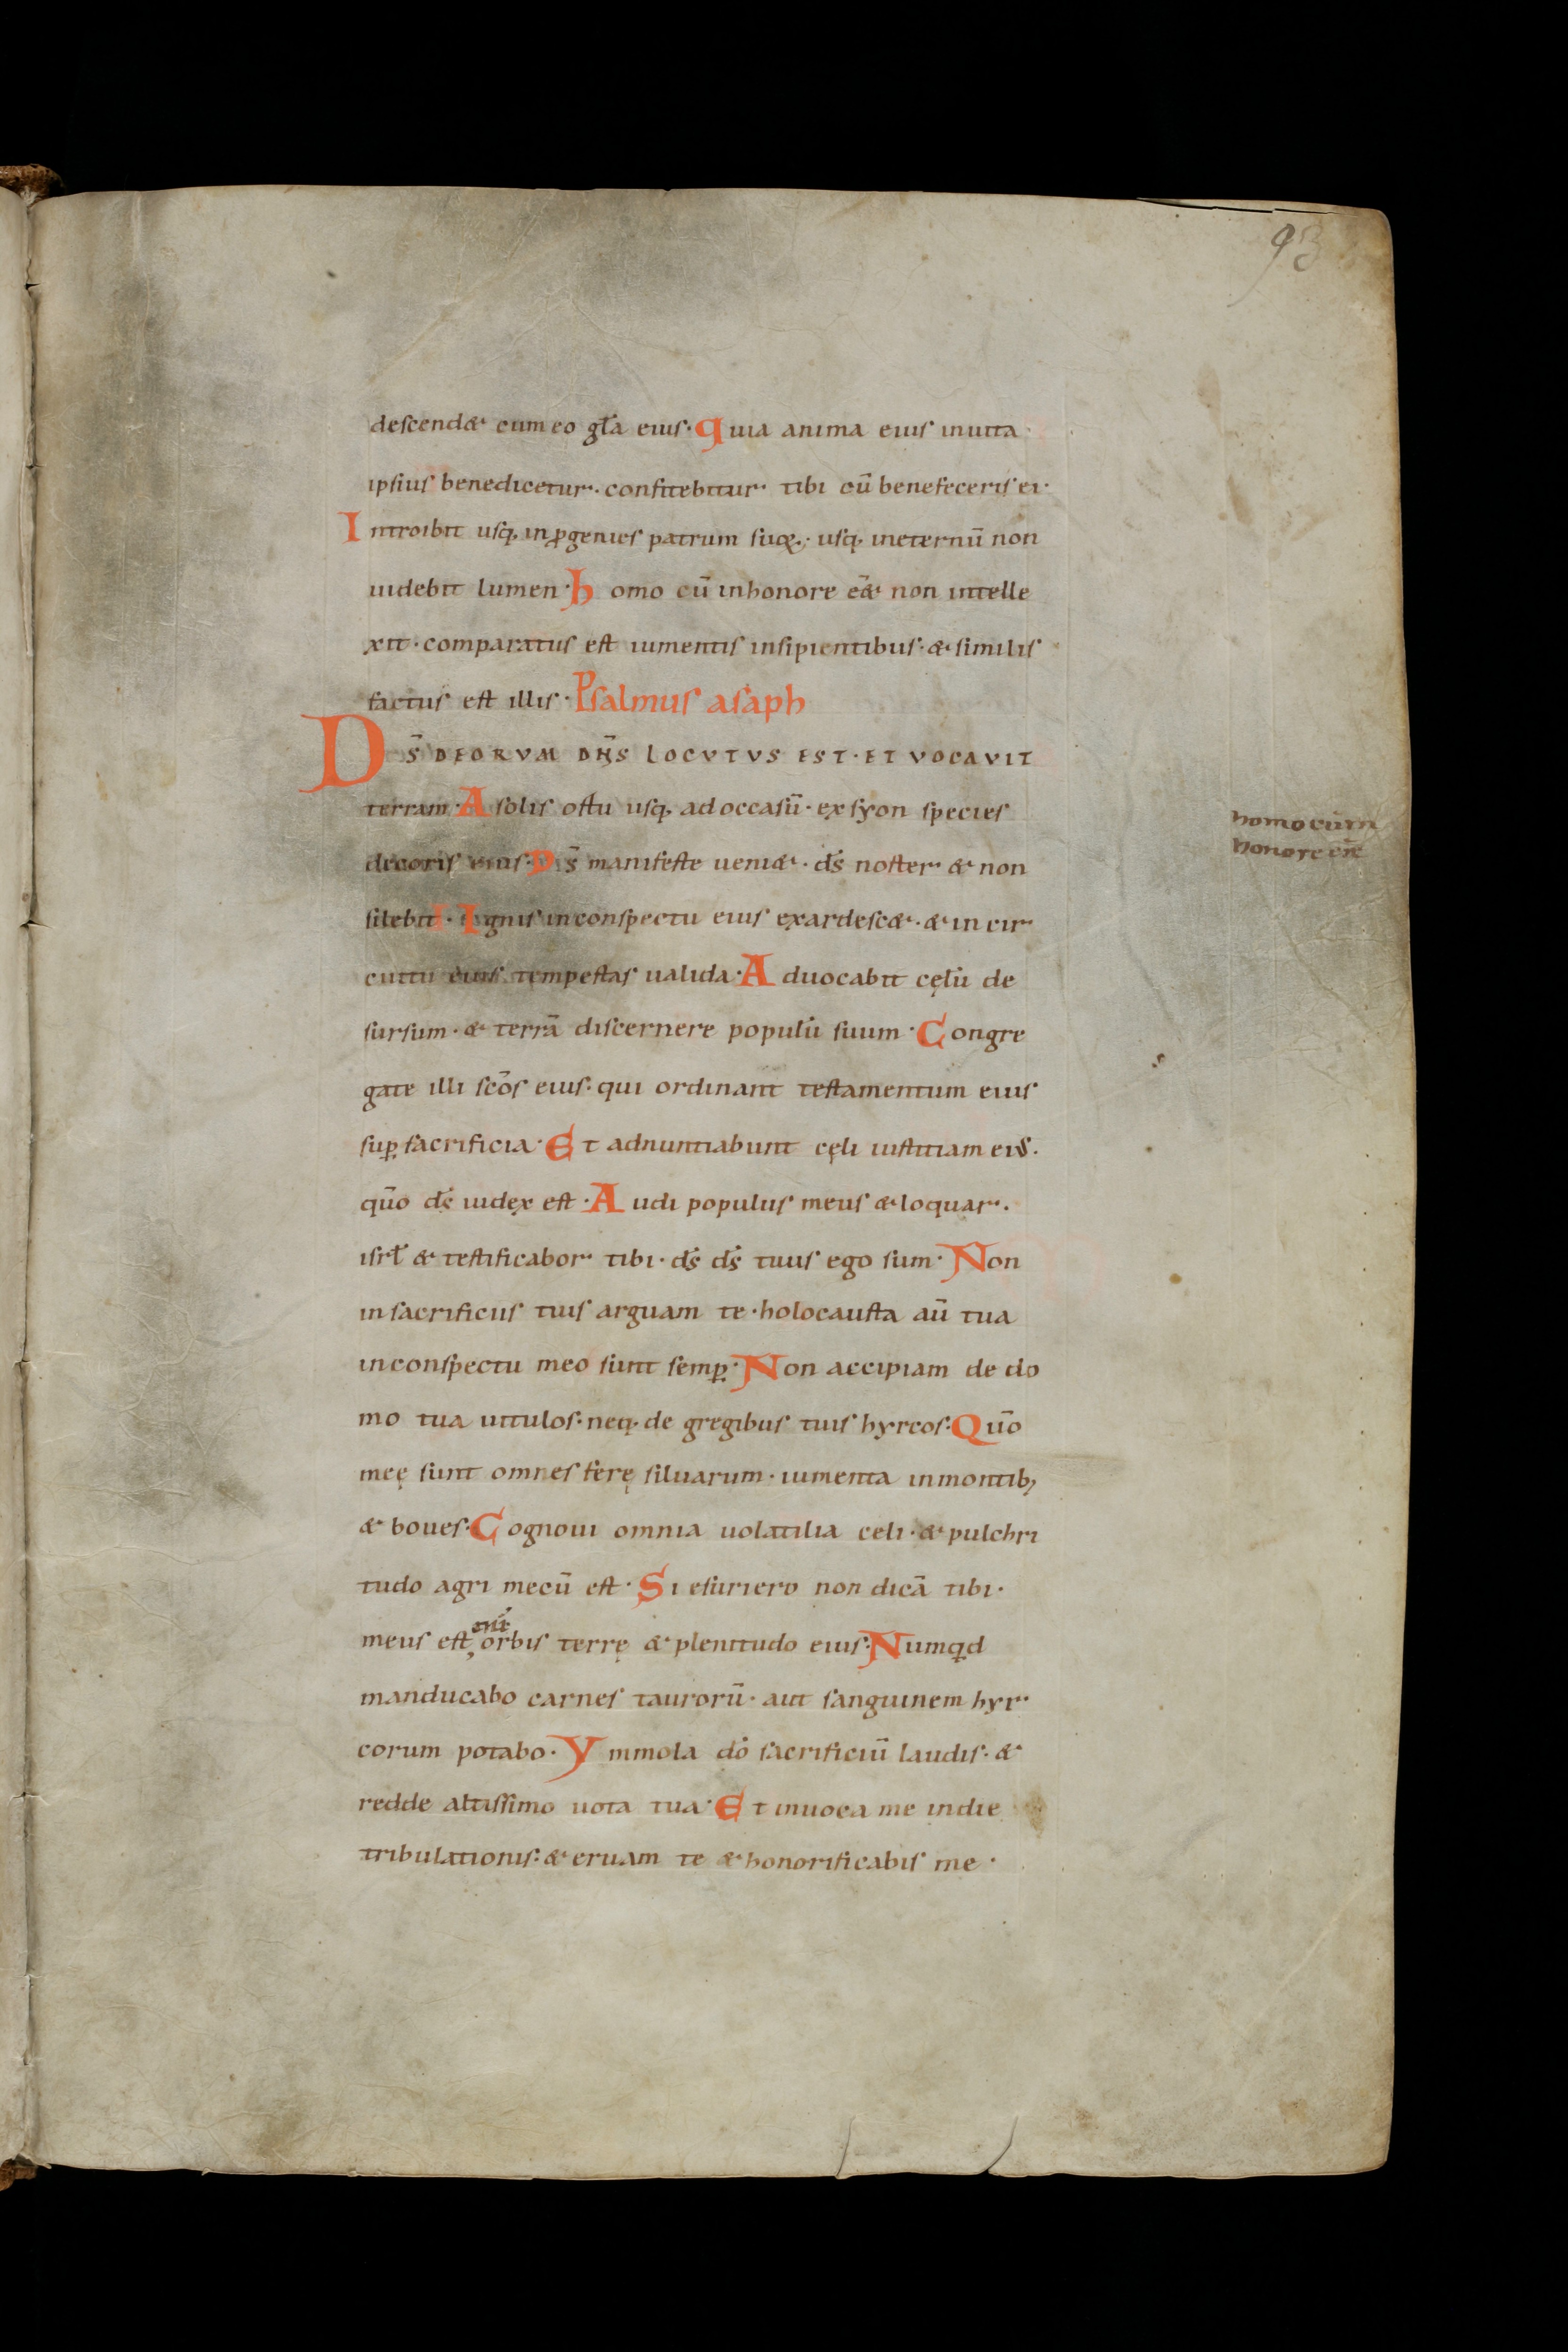 93
descendet cum eo gl̄a eius· quia anima eius inuita
ipsius benedicetur· confitebitur tibi cū benefeceris ei·
Introibit usq; in ꝓgenies patrum suoꝝ· usq; ineternū non
uidebit lumen· homo cū inhonore eēt non intelle
xit· comparatus est iumentis insipientibus· et similis
factus est illis· Psalmus asaph
DS̄ DEORVM DN̄S LOCVTVS EST· ET VOCAVIT
terram· A solis ortu usq; ad occasū· ex syon species
decoris eius· DS̄ manifeste ueniet· ds̄ noster et non
silebit· Ignis inconspectu eius exardescet· et in cir
cuitu eius tempestas ualida· Aduocabit cęlū de
sursum· et terrā discernere populū suum· Congre
gate illi sc̄os eius· qui ordinant testamentum eius
suꝑ sacrificia· Et adnuntiabunt cęli iustitiam eius·
qūo ds̄ iudex est· Audi populus meus et loquar·
isrl̄ et testificabor tibi· ds̄ ds̄ tuus ego sum· Non
in sacrificiis tuis arguam te· holocausta aū tua
inconspectu meo sunt semꝑ· Non accipiam de do
mo tua uitulos· neq; de gregibus tuis hyrcos· Qūo
meę sunt omnes ferę siluarum· iumenta inmontib;
et boues· Cognoui omnia uolatilia celi· et pulchri
tudo agri mecū est· Si esuriero non dicā tibi·
meus est, eni orbis terrę et plenitudo eius· Numqd
manducabo carnes taurorū· aut sanguinem hyr
corum potabo· Ymmola dō sacrificiū laudis· et
redde altissimo uota tua· Et inuoca me indie
tribulationis· et eruam te et honorificabis me·
homo cum in
honore eēt